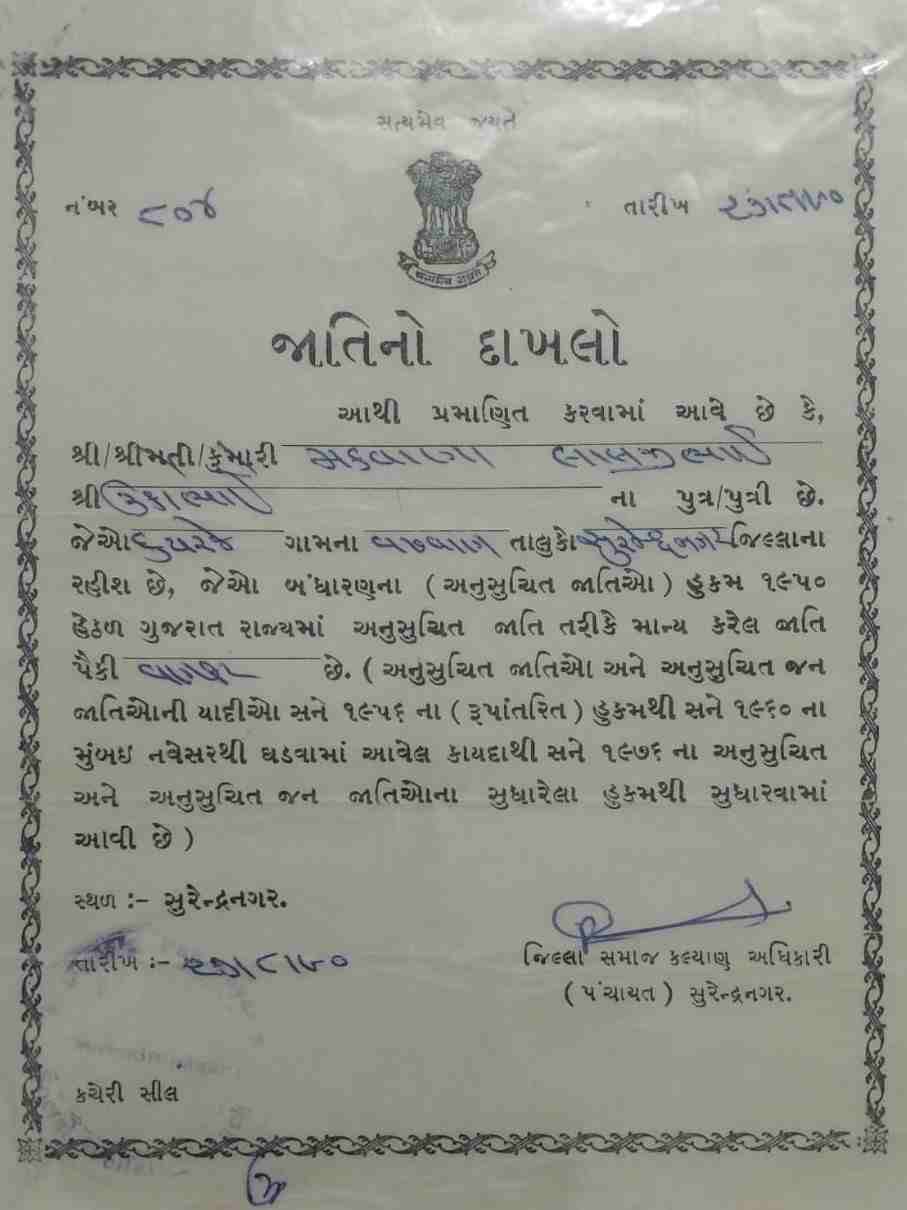 સત્યમેવ જયતે
નંબર ૮૦૪ તારીખ
સત્યમેવ જયતે
જાતિનો દાખલો
આથી પ્રમાણિત કરવામાં આવે છે કે,
શ્રી/શ્રીમતી/કુમારી મકવાણા લાલજીભાઈ
શ્રી ઉકાભાઈ ના પુત્ર/પુત્રી છે.
જેઓ દુધરેજ ગામના વઢવાણ તાલુકો સુરેન્દ્રનગર જિલ્લાના
રહીશ છે, જેઓ બંધારણના ( અનુસુચિત જાતિઓ ) હુકમ ૧૯૫૦
હેઠળ ગુજરાત રાજ્યમાં અનુસુચિત જાતિ તરીકે માન્ય કરેલ જાતિ
પૈકી વણકર છે. ( અનુસુચિત જાતિઓ અને અનુસુચિત જન
જાતિઓની યાદીઓ સને ૧૯૫૬ ના ( રૂપાંતરિત ) હુકમથી સને ૧૯૬૦ ના
મુંબઇ નવેસરથી ઘડવામાં આવેલ કાયદાથી સને ૧૯૭૬ ના અનુસુચિત
અને અનુસુચિત જન જાતિઓના સુધારેલા હુકમથી સુધારવામાં
આવી છે )
સ્થળ :- સુરેન્દ્રનગર.
તારીખ :-
જિલ્લા સમાજ કલ્યાણ અધિકારી
( પંચાયત ) સુરેન્દ્રનગર.
કચેરી સીલ